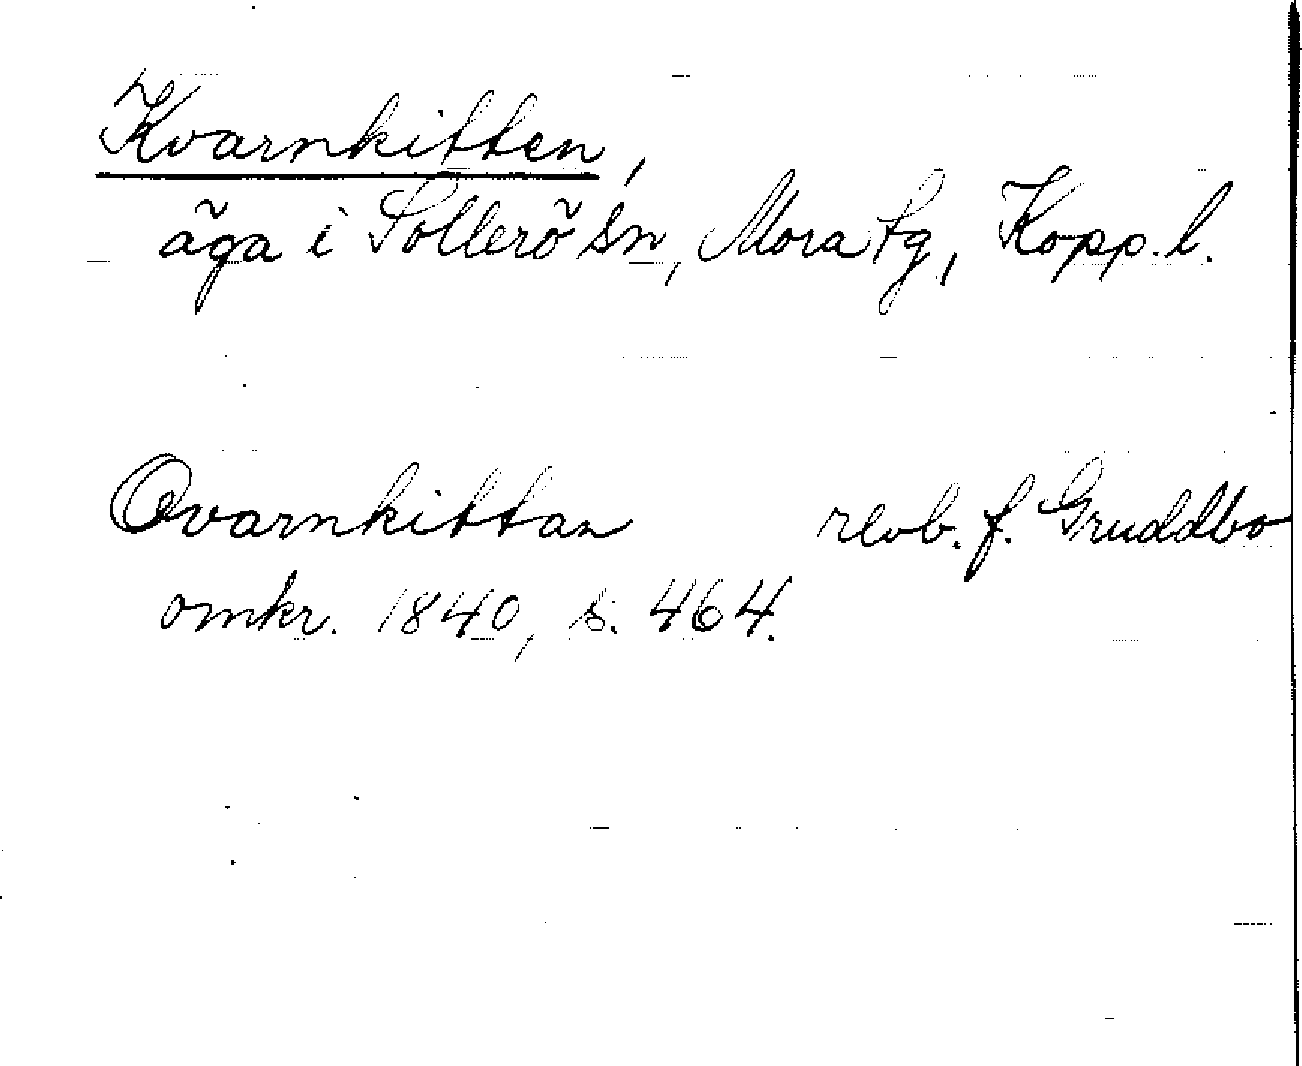 Kvarnkitten,
äga i Sollerö sn, Mora tg, Kopp. l.
Qvarnkittan revb. f. Gruddbo
omkr. 1840, s. 464.